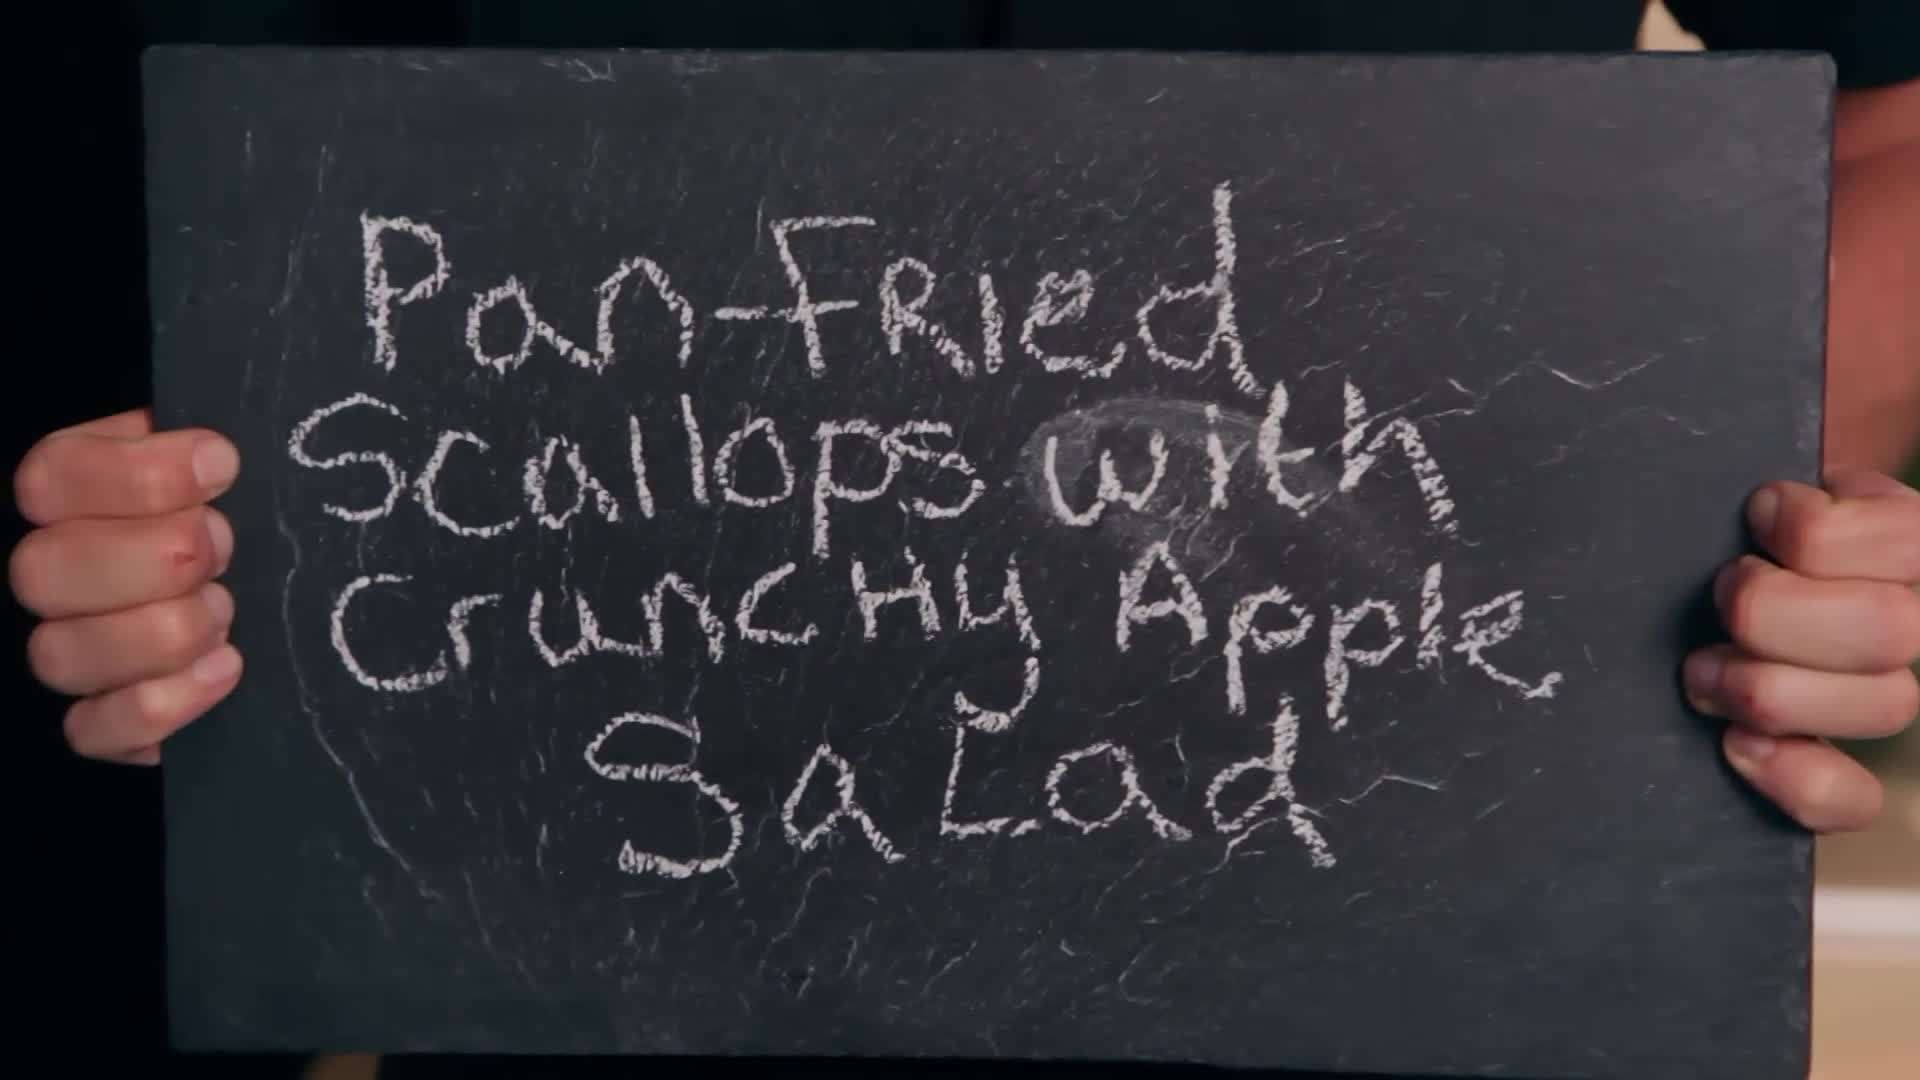 Pan-Fried
Scallops with
Crunchy Apple
Salad